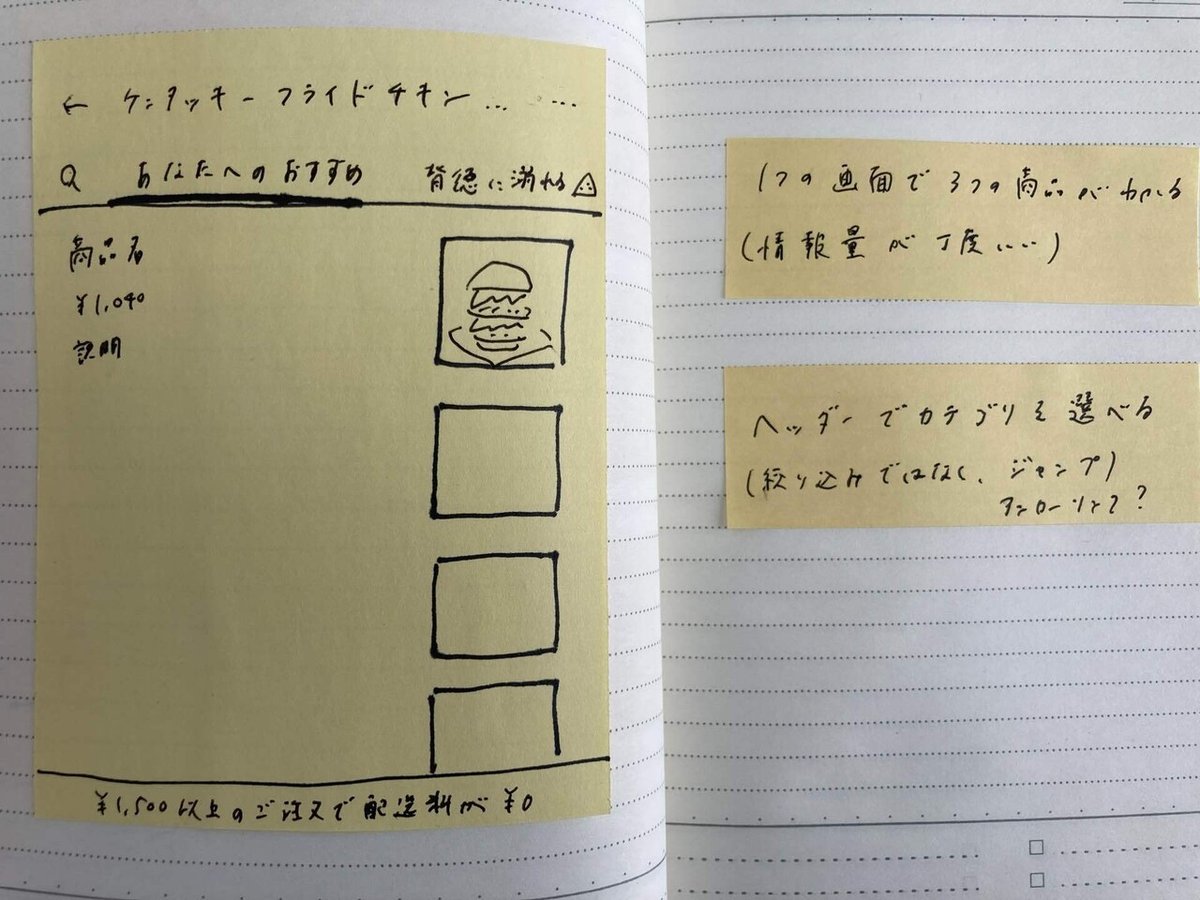 ← ケンタッキーフライドチキン... ...
Q あなたへのおすすめ 背徳に溺れる
商品名
¥1,040
説明
¥1,500以上のご注文で配送料が¥0
1つの画面で3つの商品がわかる
(情報量が丁度いい)
ヘッダーでカテゴリを選べる
(絞り込みではなく、ジャンプ)
アンカーリンク?